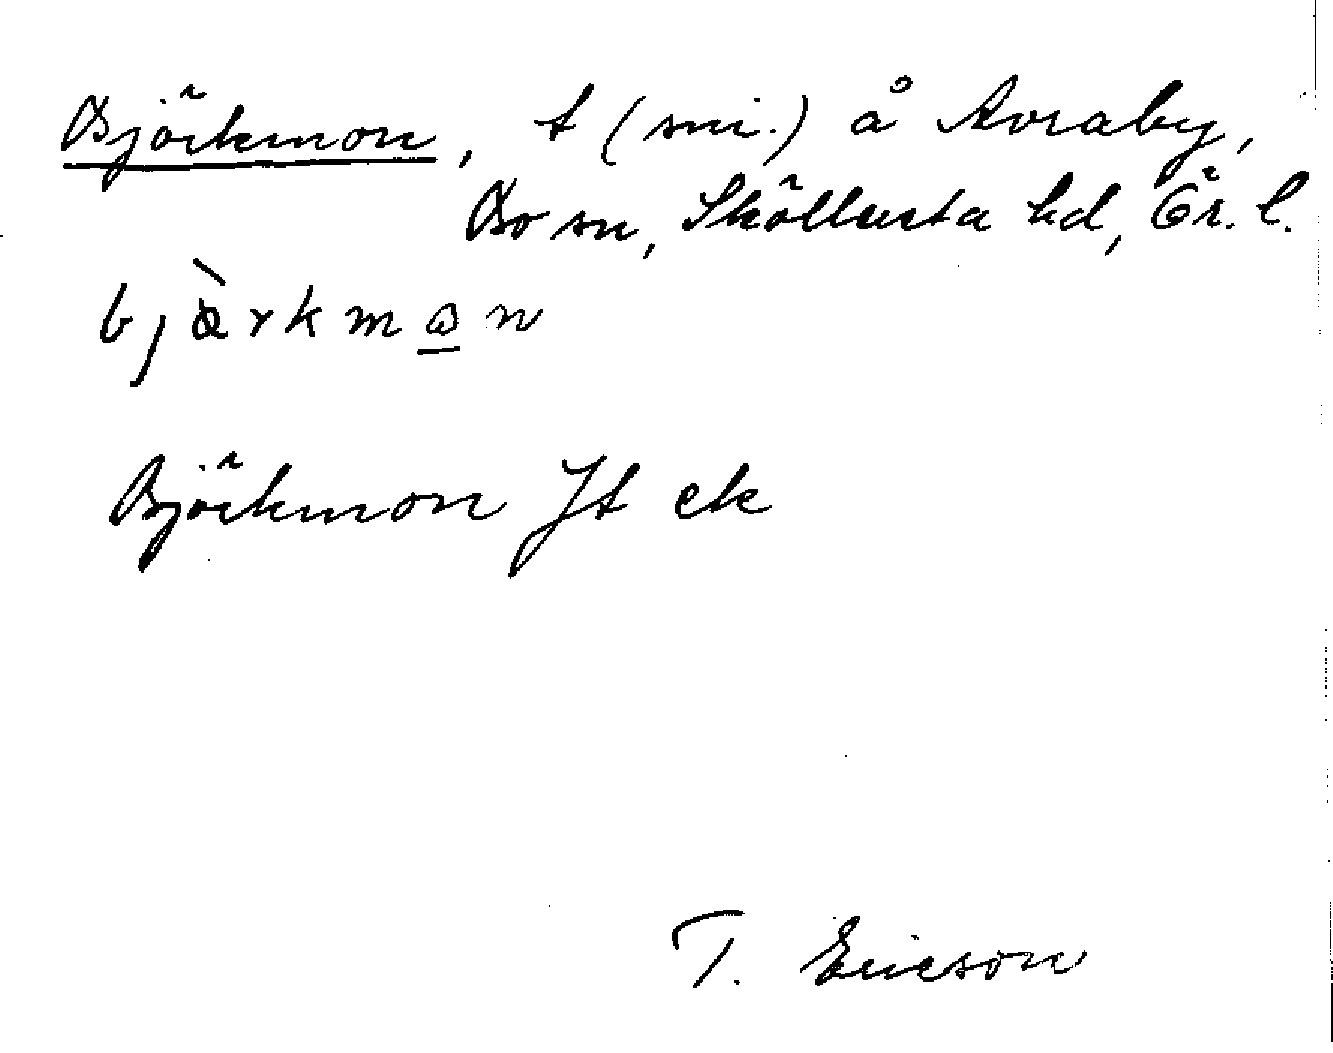 Björkmon, t (mi.) å Avraby,
Bo sn, Sköllersta hd, Ör. l.
bjǫ̀rkmån
Björkmon Jt ek
T. Ericson